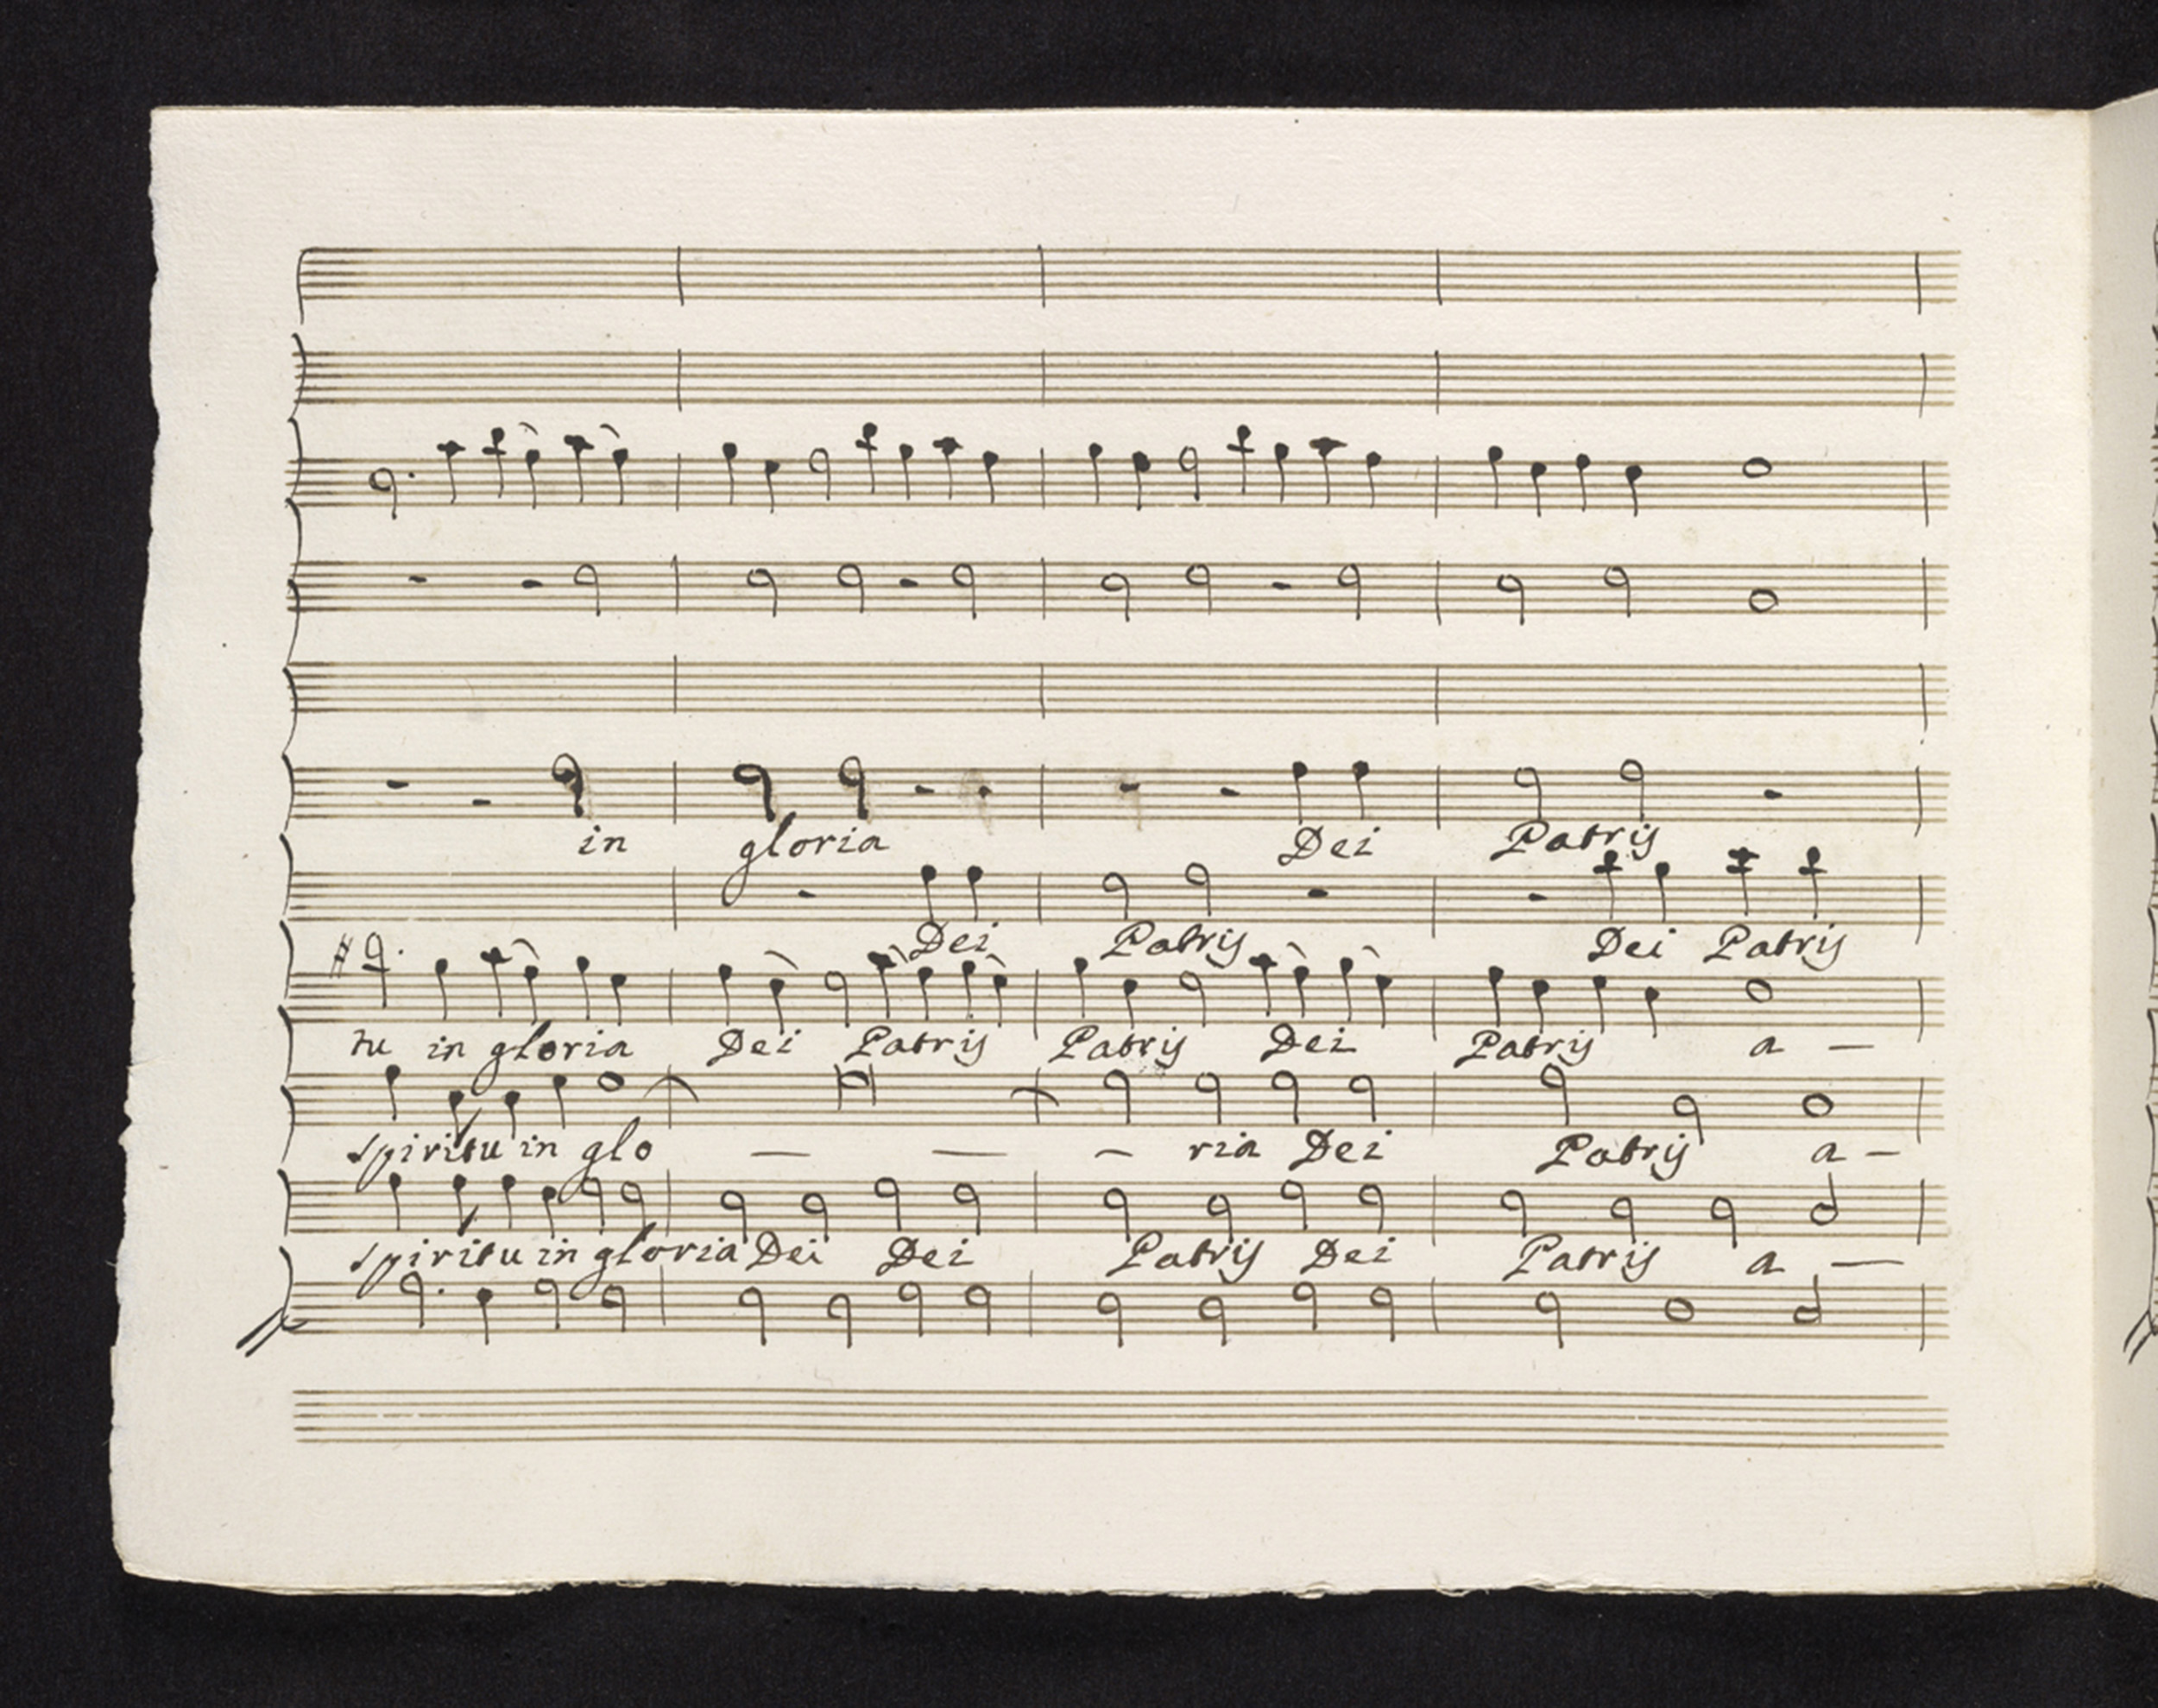 in gloria Dei Patrij
Dei Patrij Dei Patrij
tu in gloria Dei Patrij Patrij Dei Patrij a —
spiritu in glo — — — ria Dei Patrij a —
spiritu in gloria Dei Dei Patrij Dei Patrij a —